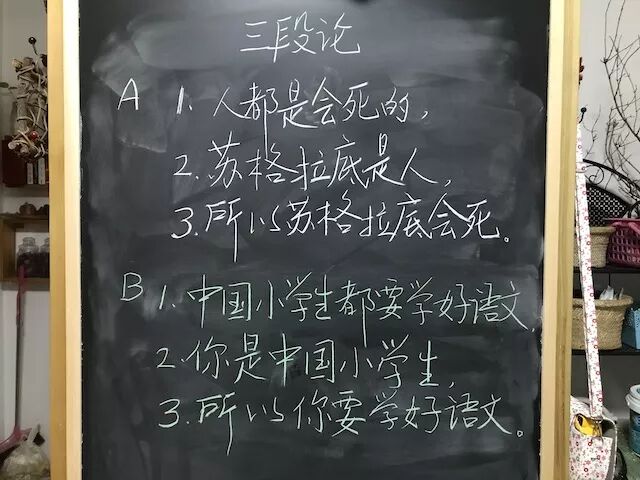 三段论
A 1. 人都是会死的,
2. 苏格拉底是人,
3. 所以苏格拉底会死。
B 1. 中国小学生都要学好语文,
2. 你是中国小学生,
3. 所以你要学好语文。